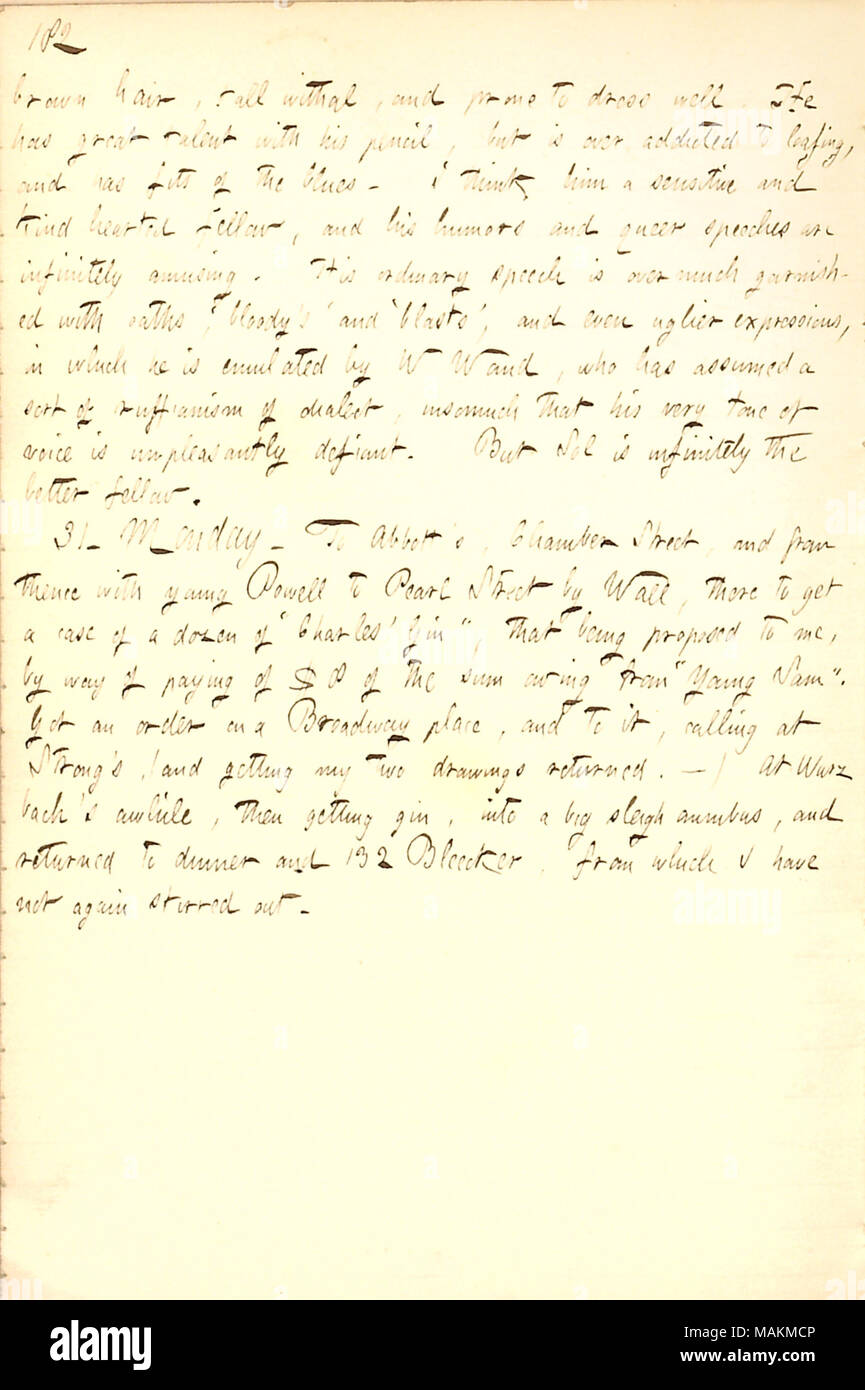 182
brown hair, tall withal, and prone to dress well. He
has great talent with his pencil, but is over addicted to loafing,
and has fits of the blues - I think him a sensitive and
kind hearted fellow, and his humors and queer speeches are
infinitely amusing. His ordinary speech is over much garnish-
ed with oaths, 'bloody's' and 'blasts', and even uglier expressions,
in which he is emulated by W Waud, who has assumed a
sort of ruffianism of dialect, insomuch that his very tone of
voice is unpleasantly defiant. But Sol is infinitely the
better fellow.
31_ Monday_ To Abbott's, Chamber Street, and from
thence with young Powell to Pearl Street by Wall, there to get
a case of a dozen of "Charles' Gin", that being proposed to me,
by way of paying of $8 of the sum owing from "Young Sam".
Got an order on a Broadway place, and to it, calling at
Strong's, (and getting my two drawings returned. —) At Wurz
bach's awhile, then getting gin, into a big sleigh omnibus, and
returned to dinner and 132 Bleecker, from which I have
not again stirred out_
alamy
alamy
Image ID: MAKMCP
www.alamy.com